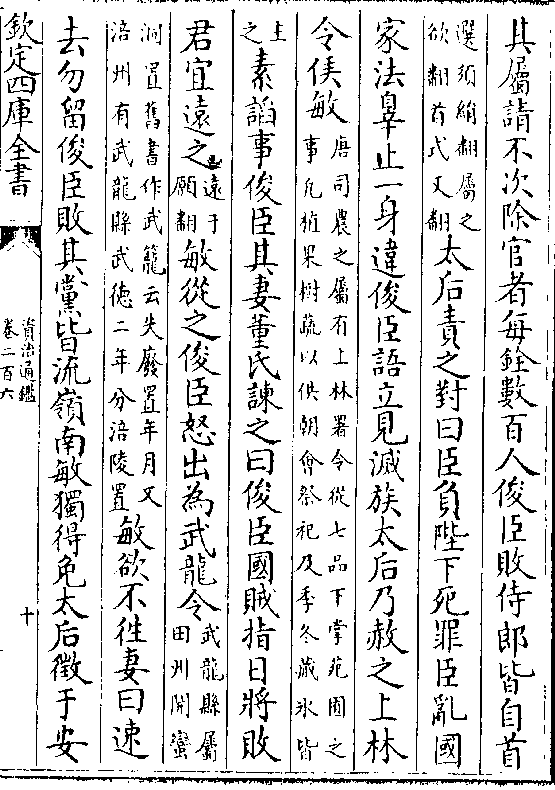 其屬請不次除官者每銓數百人俊臣敗侍郎皆自首
選須絹翻屬之
欲翻首式又翻
太后責之對曰臣負陛下死罪臣亂國
家法辠止一身違俊臣語立見滅族太后乃赦之上林
令侯敏
唐司農之屬有上林署令從七品下掌苑囿之
事凡植果樹蔬以供朝會祭祀及季冬藏氷皆
主
之
素諂事俊臣其妻董氏諫之曰俊臣國賊指日將敗
君宜遠之
遠于
願翻
敏從之俊臣怒出為武龍令
武龍縣屬
田州開蠻
洞置舊書作武籠云失廢置年月又
涪州有武龍縣武德二年分涪陵置
敏欲不往妻曰速
去勿留俊臣敗其黨皆流嶺南敏獨得免太后徵于安
欽定四庫全書
資治通鑑
卷二百六
十